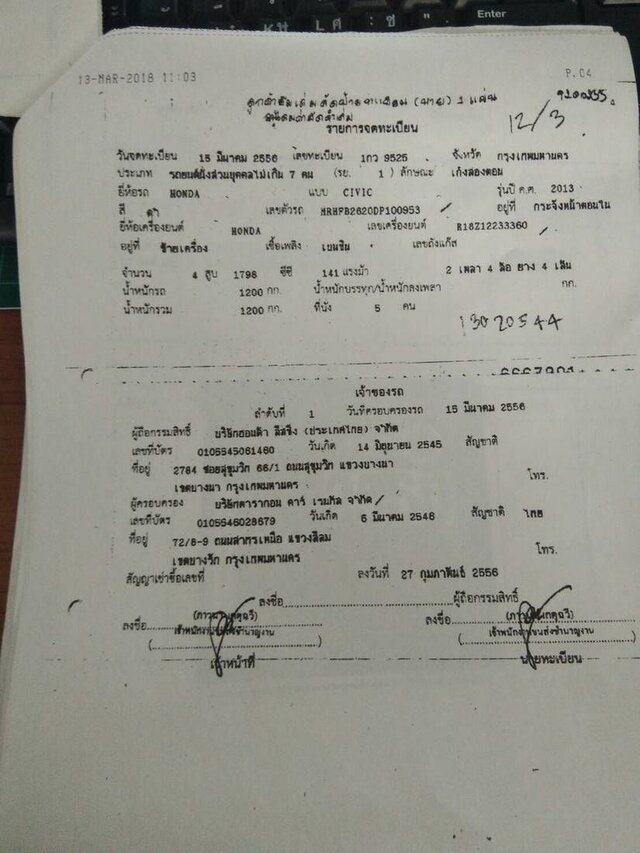 Enter
13-MAR-2018 11:03 P.04
12/3
รายการจดทะเบียน
วันจดทะเบียน 15 มีนาคม 2556 เลขทะเบียน 1กว 9525 จังหวัด กรุงเทพมหานคร
ประเภท รถยนต์นั่งส่วนบุคคลไม่เกิน 7 คน (รย. 1) ลักษณะ เก๋งสองตอน
ยี่ห้อรถ HONDA แบบ CIVIC รุ่นปี ค.ศ. 2013
สี ดำ เลขตัวรถ MRHFB2620DP100953 อยู่ที่ กระจังหน้าตอนใน
ยี่ห้อเครื่องยนต์ HONDA เลขเครื่องยนต์ R18Z12233360
อยู่ที่ ซ้ายเครื่อง เชื้อเพลิง เบนซิน เลขถังแก๊ส
จำนวน 4 สูบ 1798 ซีซี 141 แรงม้า 2 เพลา 4 ล้อ ยาง 4 เส้น
น้ำหนักรถ 1200 กก. น้ำหนักบรรทุก/น้ำหนักลงเพลา กก.
น้ำหนักรวม 1200 กก. ที่นั่ง 5 คน
13020544
เจ้าของรถ
ลำดับที่ 1 วันที่ครอบครองรถ 15 มีนาคม 2556
ผู้ถือกรรมสิทธิ์ บริษัทฮอนด้า ลีสซิ่ง (ประเทศไทย) จำกัด
เลขที่บัตร 0105545061460 วันเกิด 14 มิถุนายน 2545 สัญชาติ
ที่อยู่ 2784 ซอยสุขุมวิท 66/1 ถนนสุขุมวิท แขวงบางนา
เขตบางนา กรุงเทพมหานคร โทร.
ผู้ครอบครอง บริษัทดรากอน คาร์ เรนทัล จำกัด
เลขที่บัตร 0105546028679 วันเกิด 6 มีนาคม 2546 สัญชาติ ไทย
ที่อยู่ 72/8-9 ถนนสาทรเหนือ แขวงสีลม
เขตบางรัก กรุงเทพมหานคร โทร.
สัญญาเช่าซื้อเลขที่ ลงวันที่ 27 กุมภาพันธ์ 2556
ลงชื่อ ผู้ถือกรรมสิทธิ์
ลงชื่อ ลงชื่อ
เจ้าหน้าที่ นายทะเบียน